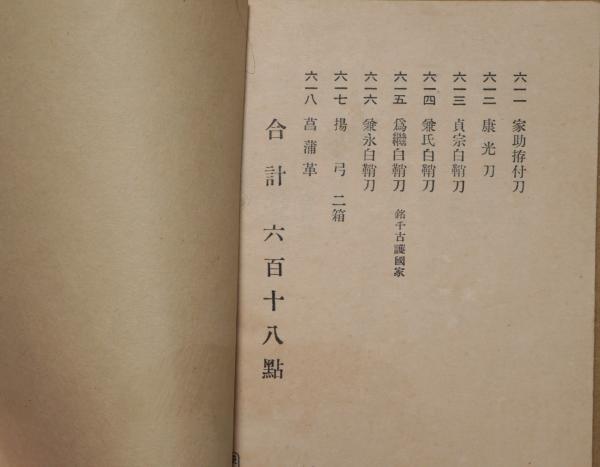 六一一 家助拵付刀
六一二 康光刀
六一三 貞宗白鞘刀
六一四 兼氏白鞘刀
六一五 爲繼白鞘刀 銘千古護國家
六一六 兼永白鞘刀
六一七 揚弓 二箱
六一八 菖蒲革
合計 六百十八點